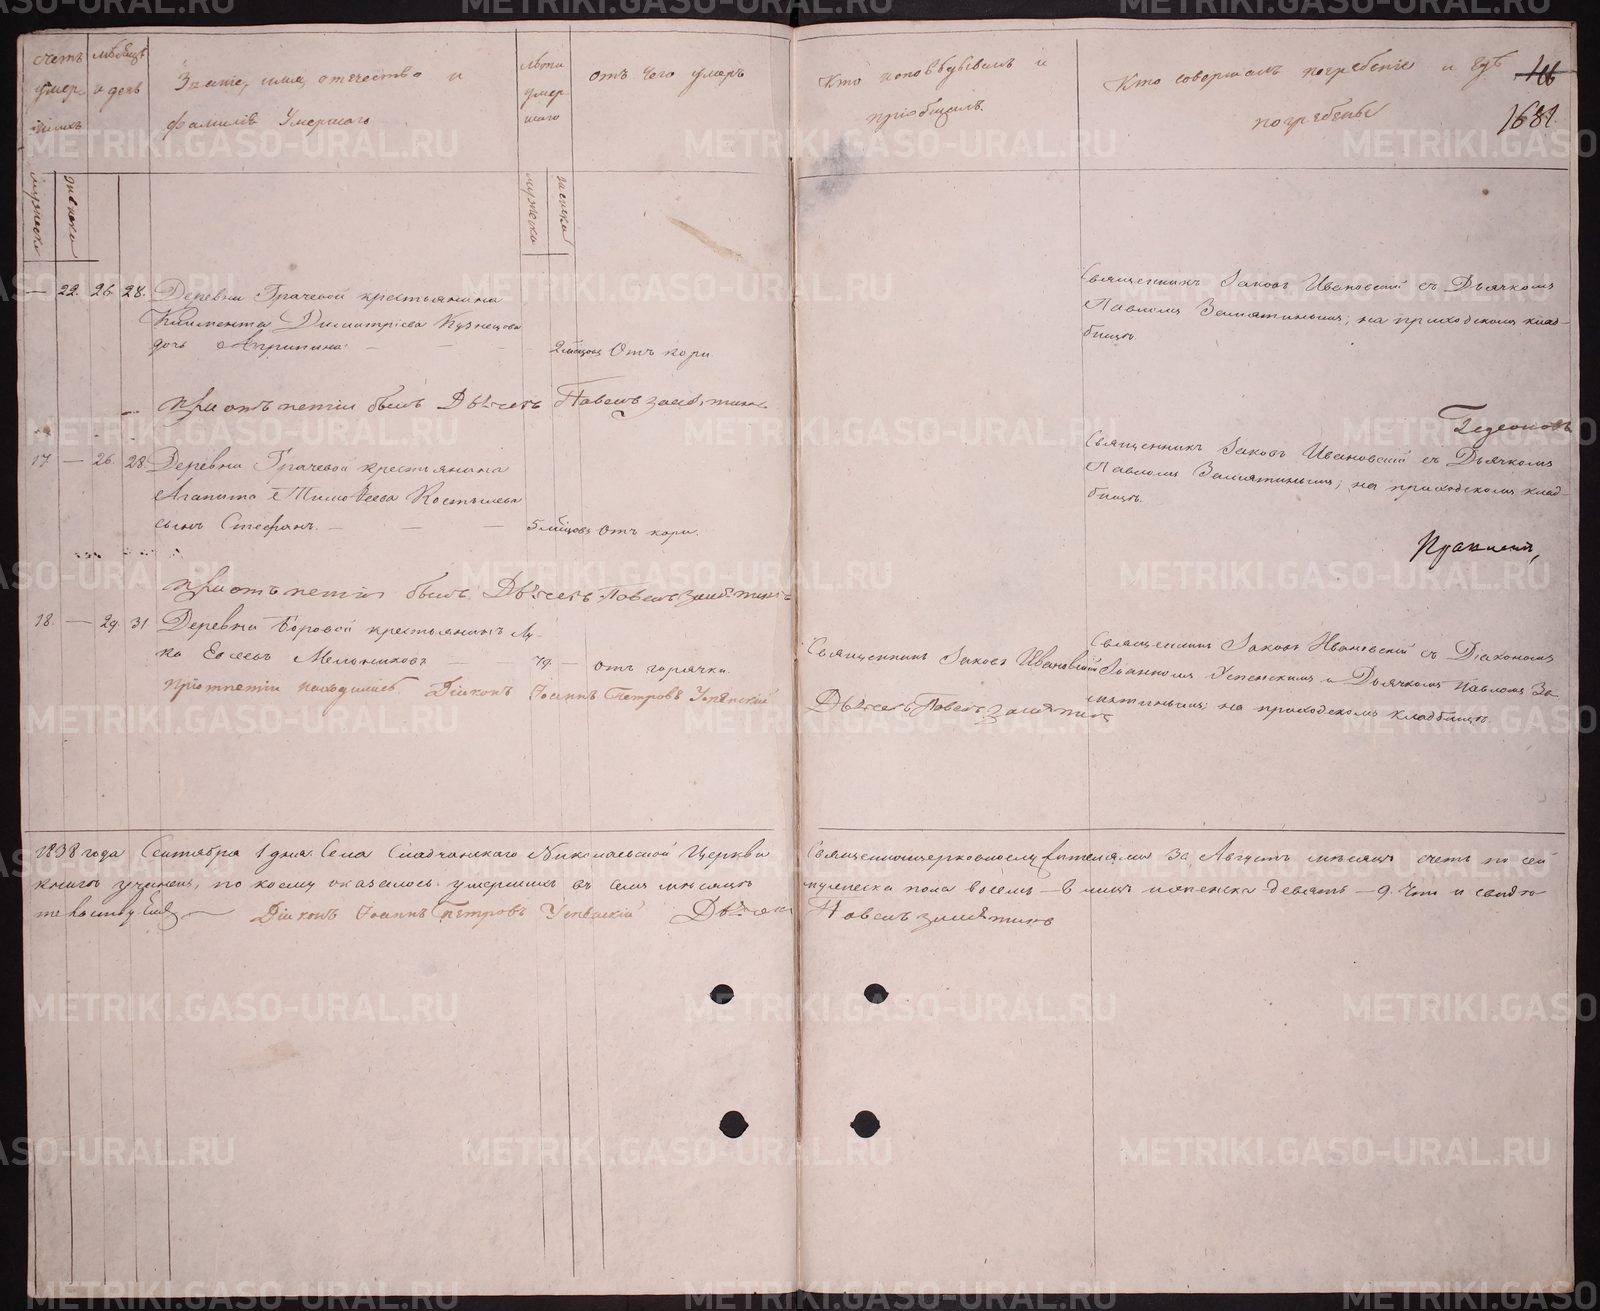 счетъ умер шихъ
мѣсяцъ и день
Званіе, имя, отечество и
фамилія Умершаго
лѣта умер шаго
отъ чего умеръ
Кто исповѣдывалъ и
пріобщилъ
Кто совершалъ погребеніе и гдѣ
погребены
1681.
мужеска
женска
мужеска
женска
— 22. 26. 28. Деревни Грачевой крестьянина
Климента Димитріева Кузнецова
дочь Агрипина. — — — 2 мѣсяц. Отъ кори.
Священникъ Іаковъ Ивановскій съ Дьячкомъ
Павломъ Замятинымъ; на приходскомъ клад-
бищѣ.
при отъ петіи былъ Дьячекъ Павелъ замятинъ
17. — 26. 28. Деревни Грачевой крестьянина
Агапита Тимоѳеева Костылева
сынъ Стефанъ. — — — 5 мѣсцовъ Отъ кори.
Священникъ Іаковъ Ивановскій съ Дьячкомъ
Павломъ Замятинымъ; на приходскомъ клад-
бищѣ.
при отъ петіи былъ Дьячекъ Павелъ замятинъ
18. — 29. 31 Деревни Боровой крестьянинъ Лу-
ка Евсеевъ Мельниковъ — 79. — отъ горячки.
Приотпетіи находились Діаконъ Іоаннъ Петровъ Успенскій
Священникъ Іаковъ Ивановскій
Дьячекъ Павелъ замятинъ
Священникъ Іаковъ Ивановскій съ Діакономъ
Іоанномъ Успенскимъ и Дьячкомъ Павломъ За-
мятинымъ; на приходскомъ кладбищѣ.
1838 года Сентября 1 дня. Села Николаевской Церкви Священноцерковнослужителями за Августъ мѣсяцъ счетъ по сей
книгѣ учиненъ, по коему оказалось умершихъ въ семъ мѣсяцѣ мужеска пола восемь — 8 лицъ женска девять — 9. Что и свидѣ
тельствуемъ — Діаконъ Іоаннъ Петровъ Успенскій Дьячекъ Павелъ замятинъ
METRIKI.GASO-URAL.RU